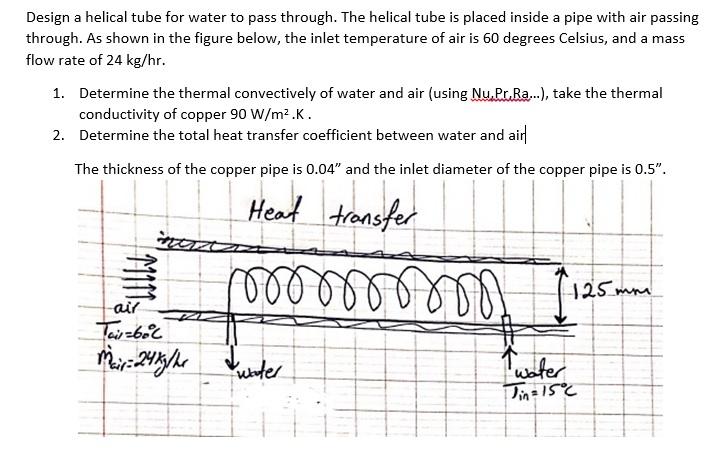 Design a helical tube for water to pass through. The helical tube is placed inside a pipe with air passing
through. As shown in the figure below, the inlet temperature of air is 60 degrees Celsius, and a mass
flow rate of 24 kg/hr.
1. Determine the thermal convectively of water and air (using Nu,Pr,Ra...), take the thermal
conductivity of copper 90 W/m² .K .
2. Determine the total heat transfer coefficient between water and air
The thickness of the copper pipe is 0.04” and the inlet diameter of the copper pipe is 0.5”.
Heat transfer
125 mm
air
Tair=60°C
ṁair=24kg/hr
water
water
Tin=15°C